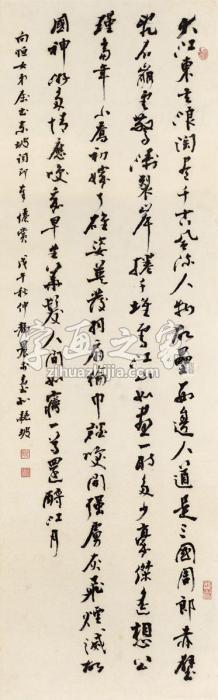 大江東去浪淘盡千古風流人物故壘西邊人道是三國周郎赤壁
亂石崩雲驚濤裂岸捲千堆雪江山如畫一時多少豪傑遙想公
瑾當年小喬初嫁了雄姿英發羽扇綸巾談咲間強虜灰飛煙滅故
國神游多情應咲我早生華髮人間如寄一尊還酹江月
向恒女弟屬書東坡詞即 賞 戊午秋仲靜農書於龍坡
字画之家
www.zihuazhijia.com